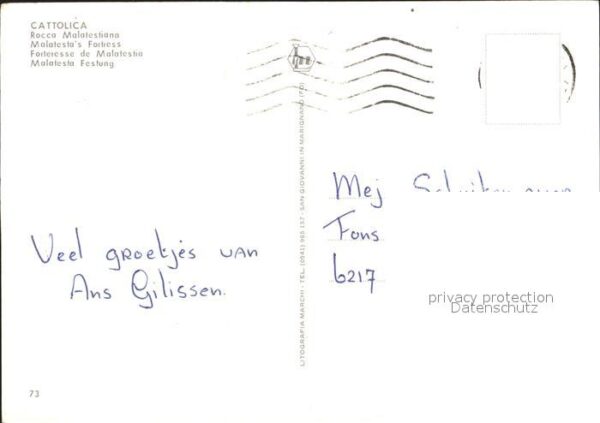 CATTOLICA
Rocca Malatestiana
Malatesta's Fortress
Forteresse de Malatestia
Malatesta Festung
LITOGRAFIA MARCHI - TEL. (0541) 955 137 - SAN GIOVANNI IN MARIGNANO (FO)
Mej
Fons
6217
Veel groetjes van
Ans Gilissen.
privacy protection
Datenschutz
73